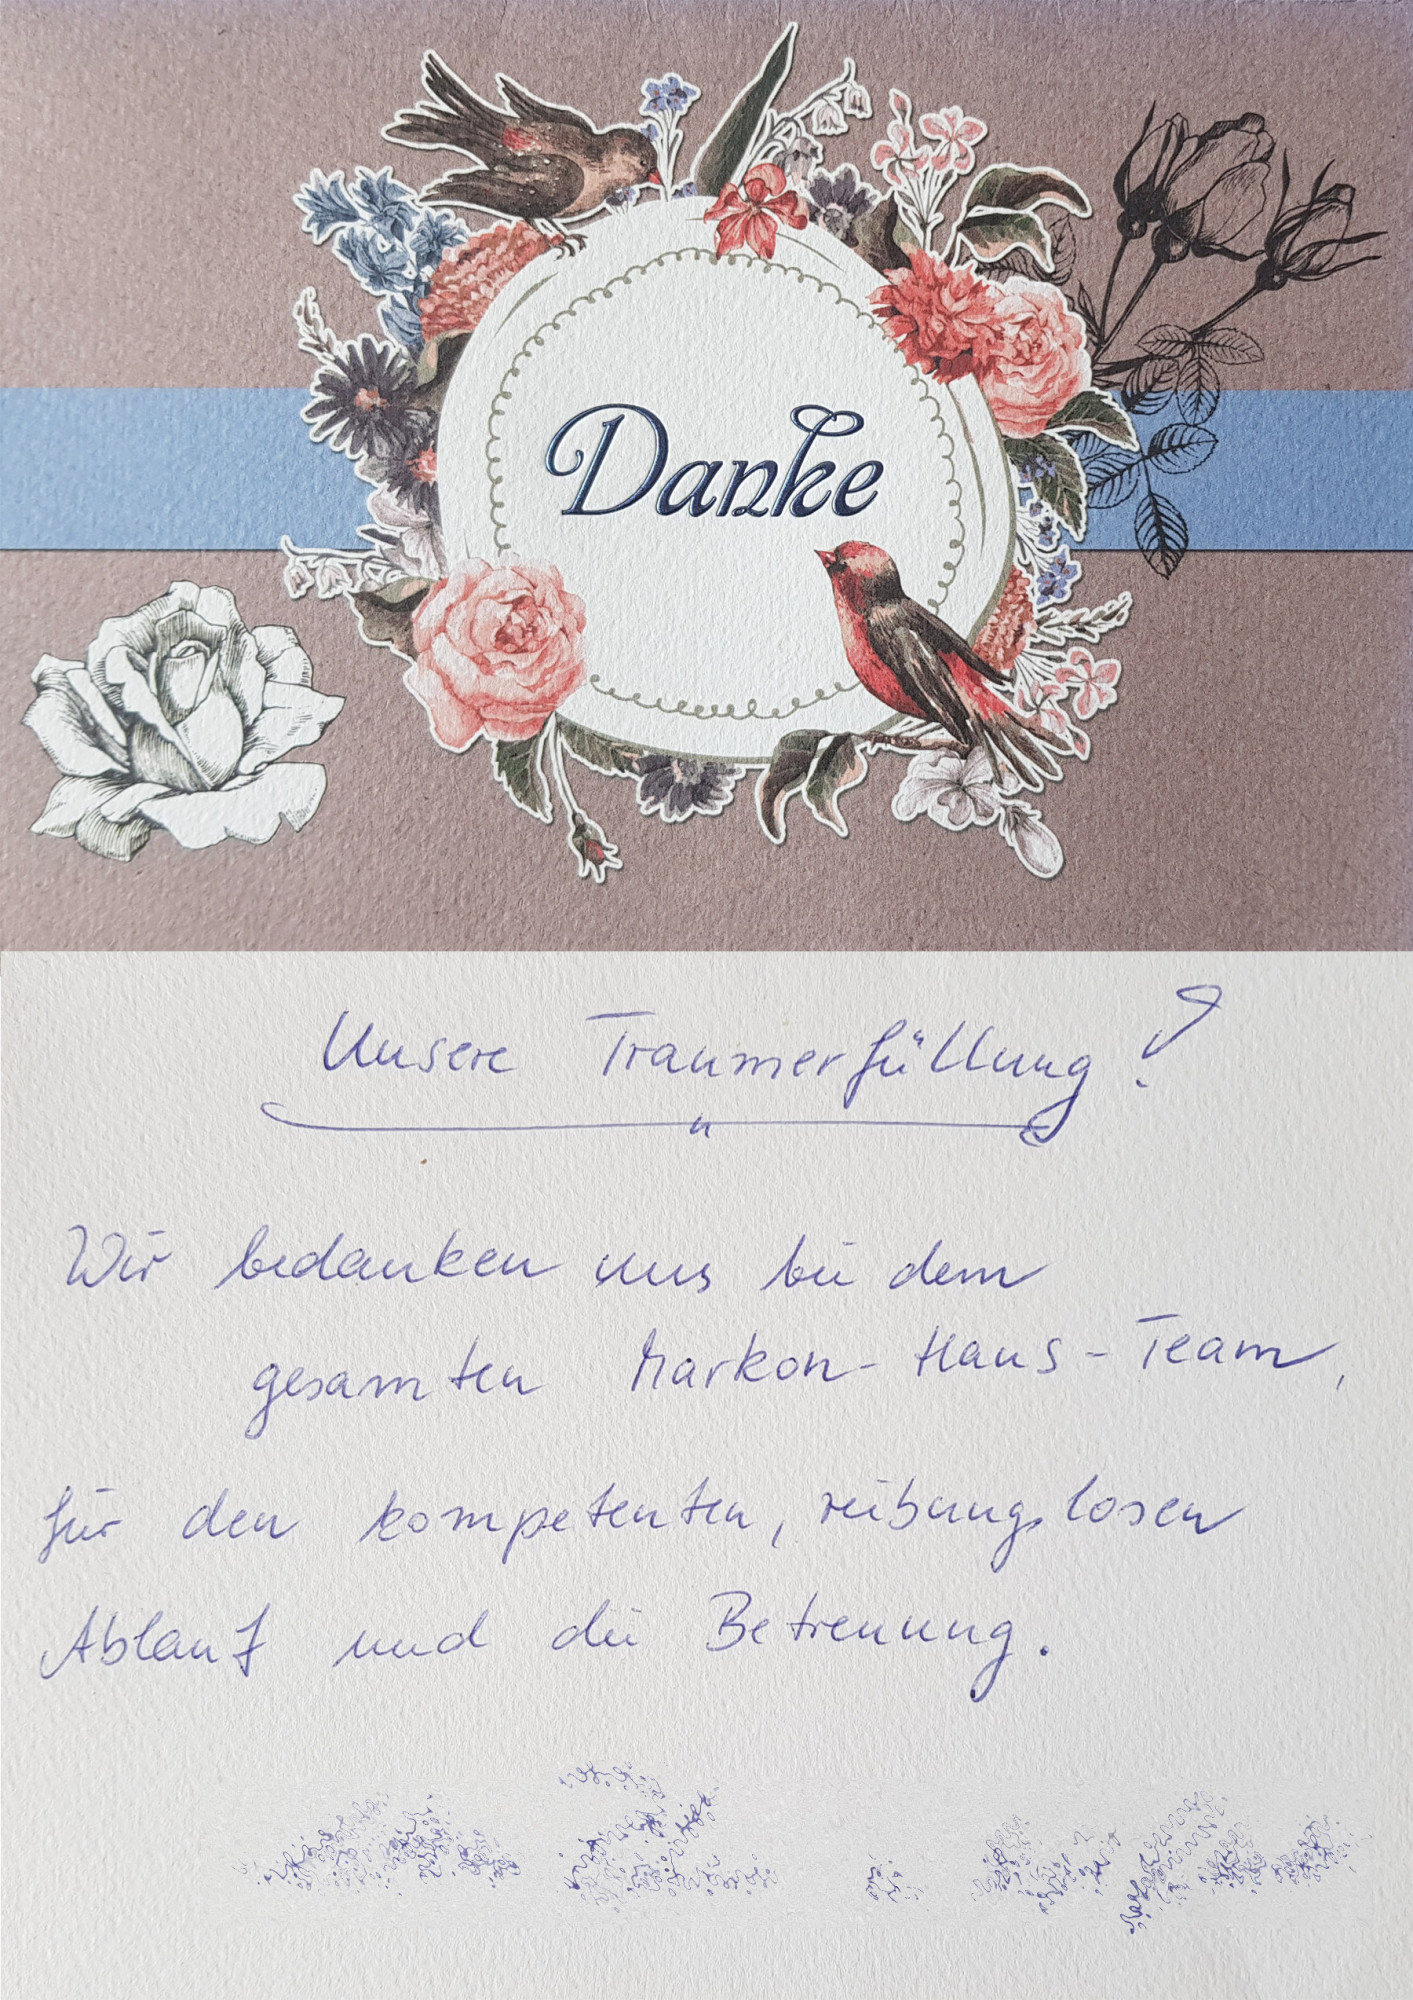 Danke
Unsere Traumerfüllung!
Wir bedanken uns bei dem
gesamten Markon-Haus-Team,
für den kompetenten, reibungslosen
Ablauf und die Betreuung.